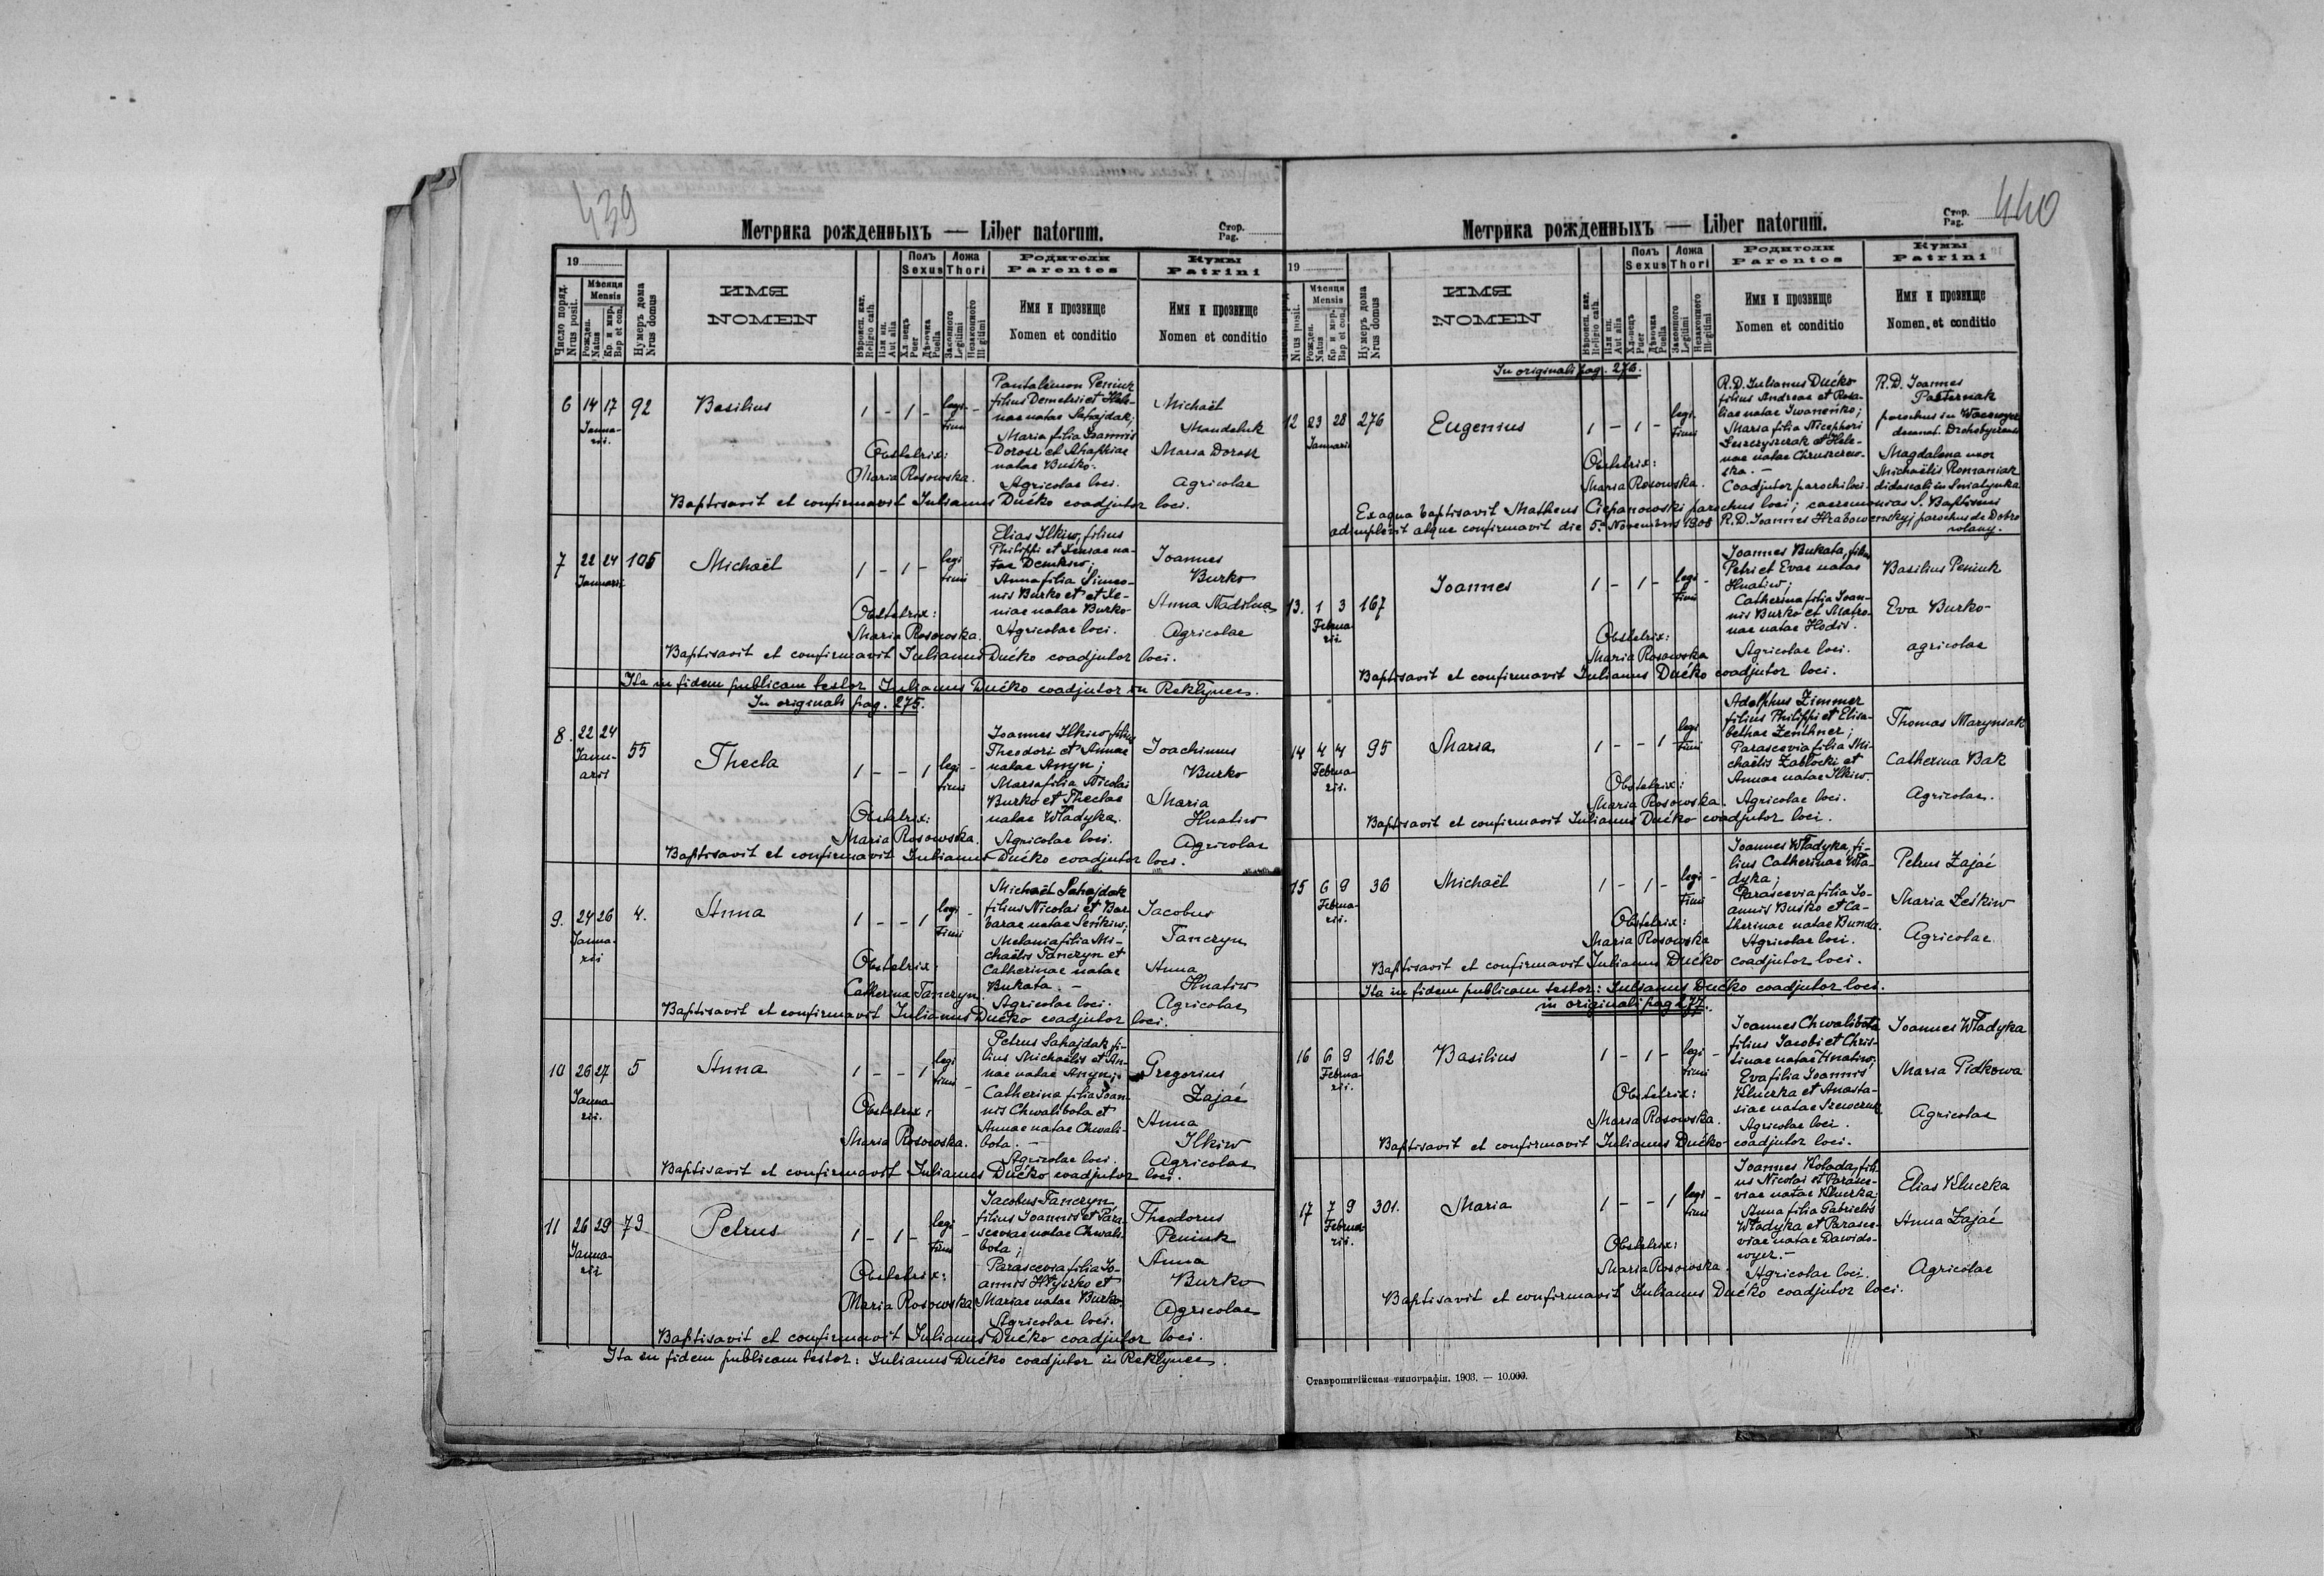 439
Метрика рожденныхъ — Liber natorum.
Стор.
Pag.
19
Число поряд.
Nrus posit.
Мѣсяця
Mensis
Рожден.
Natus
Кр. и мѵр.
Bap et con.
Нумеръ дома
Nrus domus
ИМЯ
NOMEN
Вѣроисп. кат.
Religio cath.
Или ин.
Aut alia
Полъ
Sexus
Хл-пецъ
Puer
Дѣвочка
Puella
Ложа
Thori
Законного
Legitimi
Незаконного
Illegitimi
Родители
Parentes
Имя и прозвище
Nomen et conditio
Кумы
Patrini
Имя и прозвище
Nomen et conditio
6 14 17 92 Basilius 1 - 1 - legi-
timi
Januarii.
Pantalemon Peniuk
filius Demetrii et Hele-
nae natae Sahajdak;
Maria filia Joannis
Dorosz et Ahaphiae
natae Buśko.
Agricolae loci.
Michaël
Mandeluk
Maria Dorosz
Agricolae
Obstetrix:
Maria Rosowska.
Baptisavit et confirmavit Julianus Dućko coadjutor loci.
7 22 24 105 Michaël 1 - 1 - legi
timi
Januarii
Elias Ilkiw, filius
Philippi et Xeniae na-
tae Demkiw;
Anna filia Simeo-
nis Burko et et Xe-
niae natae Burko
Agricolae loci.
Joannes
Burko
Anna
Agricolae
Obstetrix:
Maria Rosowska.
Baptisavit et confirmavit Julianus Dućko coadjutor loci.
Ita in fidem publicam testor Julianus Dućko coadjutor in Reklynec.
In originali pag. 275.
8. 22 24 55 Thecla 1 - - 1 legi -
timi
Janu-
arii
Joannes Ilkiw filius
Theodori et Annae
natae Anyn;
Maria filia Nicolai
Burko et Theclae
natae Władyka.
Agricolae loci.
Joachimus
Burko
Maria
Hnatiw
Agricolae
Obstetrix:
Maria Rosowska.
Baptisavit et confirmavit Julianus Dućko coadjutor loci.
9. 24 26 4. Anna 1 - - 1 legi -
timi
Janua-
rii
Michaël Sahajdak
filius Nicolai et Bar-
barae natae Seńkiw;
Melania filia Mi-
chaëlis Tanczyn et
Catherinae natae
Bukata. -
Agricolae loci.
Jacobus
Tanczyn
Anna
Hnatiw
Agricolae
Obstetrix:
Catherina Tanczyn.
Baptisavit et confirmavit Julianus Dućko coadjutor loci.
10 26 27 5 Anna 1 - - 1 legi
timi -
Janua-
rii.
Petrus Sahajdak fi-
lius Michaëlis et An-
nae natae Anyn;
Catherina filia Joan-
nis Chwalibota et
Annae natae Chwali-
bota. -
Agricolae loci.
Gregorius
Zając
Anna
Ilkiw
Agricolae
Obstetrix:
Maria Rosowska.
Baptisavit et confirmavit Julianus Dućko coadjutor loci.
11 26 29 79 Petrus 1 - 1 - legi
timi -
Janua-
rii
Jacobus Tanczyn
filius Joannis et Para-
sceviae natae Chwali-
bota;
Parascevia filia Jo-
annis Hłyszko et
Mariae natae Burko.
Agricolae loci.
Theodorus
Peniuk
Anna
Burko
Agricolae
Obstetrix:
Maria Rosowska
Baptisavit et confirmavit Julianus Dućko coadjutor loci.
Ita in fidem publicam testor: Julianus Dućko coadjutor in Reklynec.
440
Метрика рожденныхъ — Liber natorum.
Стор.
Pag.
19
Nrus posit.
Мѣсяця
Mensis
Рожден.
Natus
Кр. и мѵр.
Bap et con.
Нумеръ дома
Nrus domus
ИМЯ
NOMEN
Вѣроисп. кат.
Religio cath.
Или ин.
Aut alia
Полъ
Sexus
Хл-пецъ
Puer
Дѣвочка
Puella
Ложа
Thori
Законного
Legitimi
Незаконного
Illegitimi
Родители
Parentes
Имя и прозвище
Nomen et conditio
Кумы
Patrini
Имя и прозвище
Nomen et conditio
In originali pag. 276.
12 23 28 276 Eugenius 1 - 1 - legi-
timi
Januarii
R. D. Julianus Dućko
filius Andreae et Rosa-
liae natae Iwaneńko;
Maria filia Nicephori
Leszczyszak et Hele-
nae natae Chruszczew-
ska. -
Coadjutor parochi loci
R. D. Joannes
Pasternak
parochus in
decanat. Drohobycensis
Magdalena uxor
Michaëlis Romaniak
didascali in Sniatynka
Obstetrix:
Maria Rosowska.
Ex aqua baptisavit Matheus Ciepanowski parochus loci; caeremonias S. Baptismi
adimplevit atque confirmavit die 5. Novembris 1908 R. D. Joannes Hrabowenskyj parochus de Dobro
wlany.
13. 1 3 167 Joannes 1 - 1 - legi -
timi
Februa-
rii
Joannes Bukata, filius
Petri et Evae natae
Hnatiw;
Catherina filia Joan-
nis Burko et Matro-
nae natae Hodis.
Agricolae loci.
Basilius Peniuk
Eva Burko
agricolae
Obstetrix:
Maria Rosowska
Baptisavit et confirmavit Julianus Dućko coadjutor loci.
14 4 4 95 Maria 1 - - 1 legi
timi
Februa-
rii.
Adolphus Zimmer
filius Philippi et Elisa-
bethae Zenthner;
Parascevia filia Mi-
chaëlis Zabłocki et
Annae natae Ilkiw.
Agricolae loci.
Thomas Maryniak
Catherina Bak
Agricolae.
Obstetrix:
Maria Rosowska.
Baptisavit et confirmavit Julianus Dućko coadjutor loci.
15 6 9 36 Michaël 1 - 1 - legi -
timi
Februa-
rii.
Joannes Władyka, fi-
lius Catherinae Wła-
dyka;
Parascevia filia Jo-
annis Buśko et Ca-
therinae natae Bunda.
Agricolae loci.
Petrus Zając
Maria Leśkiw
Agricolae
Obstetrix:
Maria Rosowska
Baptisavit et confirmavit Julianus Dućko coadjutor loci.
Ita in fidem publicam testor: Julianus Dućko coadjutor loci.
in originali pag 277.
16 6 9 162 Basilius 1 - 1 - legi -
timi
Februa-
rii.
Joannes Chwalibota
filius Jacobi et Chris-
tinae natae Hnatiw;
Eva filia Joannis
Kluczka et Anasta-
siae natae Szewczuk
Agricolae loci.
Joannes Władyka
Maria Pidkowa
Agricolae
Obstetrix:
Maria Rosowska.
Baptisavit et confirmavit Julianus Dućko coadjutor loci.
17 7 9 301. Maria 1 - - 1 legi -
timi
Februa-
rii.
Joannes Kolada, fili-
us Nicolai et Parasce-
viae natae Kluczka;
Anna filia Gabrielis
Władyka et Parasce-
viae natae Dawido-
wycz. -
Agricolae loci.
Elias Kluczka
Anna Zając
Agricolae
Obstetrix:
Maria Rosowska.
Baptisavit et confirmavit Julianus Dućko coadjutor loci.
Ставропигійская типографія. 1903. — 10.000.